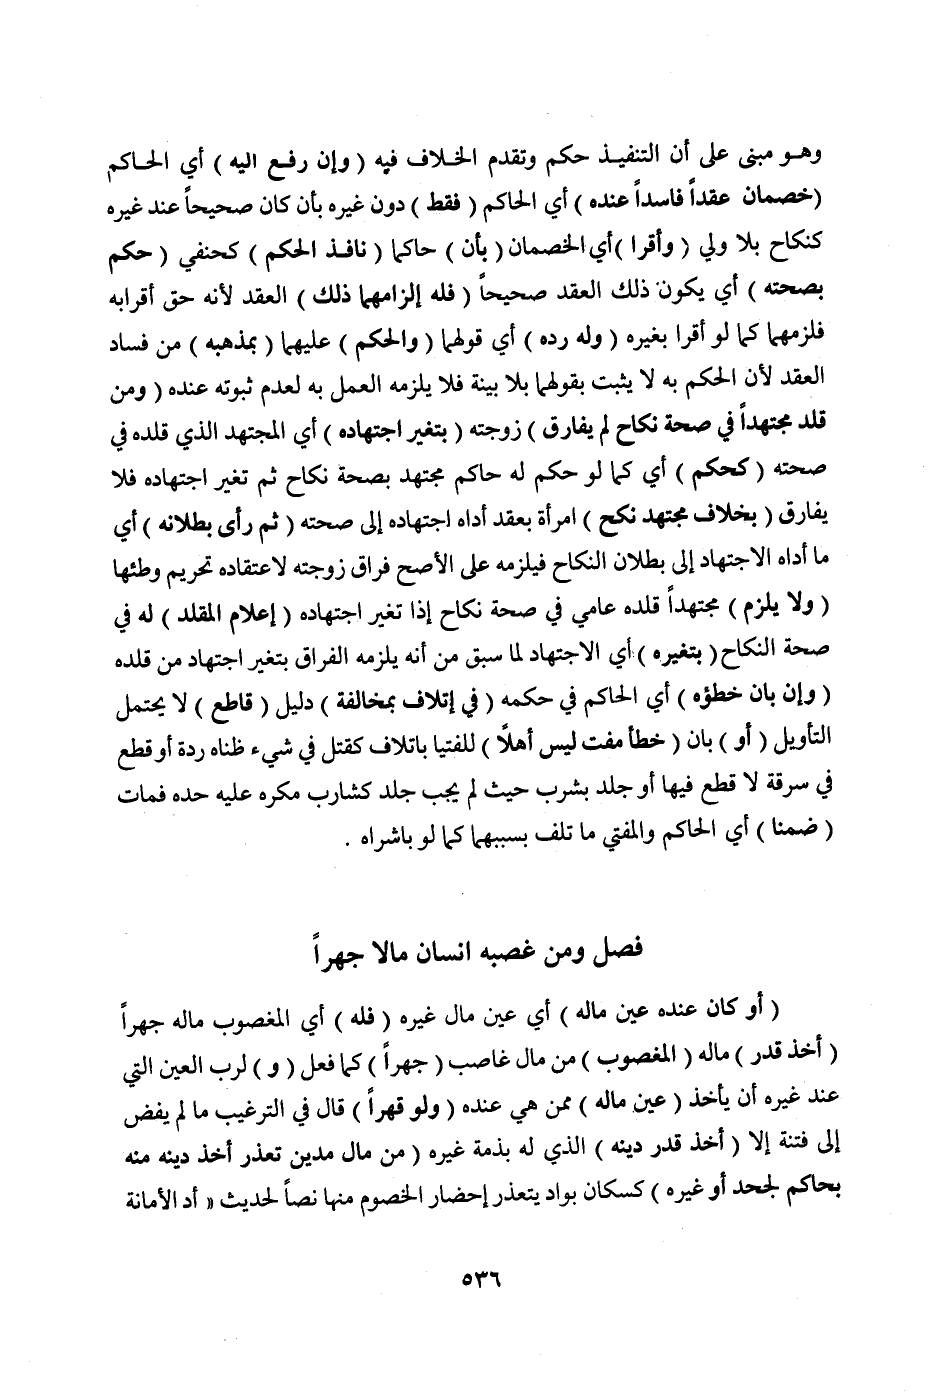 وهو مبنى على أن التنفيذ حكم وتقدم الخلاف فيه ( وإن رفع اليه ) أي الحاكم
(خصمان عقداً فاسداً عنده ) أي الحاكم ( فقط ) دون غيره بأن كان صحيحاً عند غيره
كنكاح بلا ولي ( وأقرا )أي الخصمان ( بأن ) حاكما ( نافذ الحكم ) كحنفي ( حكم
بصحته ) أي يكون ذلك العقد صحيحاً ( فله إلزامهما ذلك ) العقد لأنه حق أقرابه
فلزمهما كما لو أقرا بغيره ( وله رده ) أي قولهما ( والحكم ) عليهما ( بمذهبه ) من فساد
العقد لأن الحكم به لا يثبت بقولهما بلا بينة فلا يلزمه العمل به لعدم ثبوته عنده ( ومن
قلد مجتهداً في صحة نكاح لم يفارق ) زوجته ( بتغير اجتهاده ) أي المجتهد الذي قلده في
صحته ( كحكم ) أي كما لو حكم له حاكم مجتهد بصحة نكاح ثم تغير اجتهاده فلا
يفارق ( بخلاف مجتهد نكح ) امرأة بعقد أداه اجتهاده إلى صحته ( ثم رأى بطلانه ) أي
ما أداه الاجتهاد إلى بطلان النكاح فيلزمه على الأصح فراق زوجته لاعتقاده تحريم وطئها
( ولا يلزم ) مجتهداً قلده عامي في صحة نكاح إذا تغير اجتهاده ( إعلام المقلد ) له في
صحة النكاح ( بتغيره ) أي الاجتهاد لما سبق من أنه يلزمه الفراق بتغير اجتهاد من قلده
( وإن بان خطؤه ) أي الحاكم في حكمه ( في إتلاف بمخالفة ) دليل ( قاطع ) لا يحتمل
التأويل ( أو ) بان ( خطأ مفت ليس أهلاً ) للفتيا باتلاف كقتل في شيء ظناه ردة أو قطع
في سرقة لا قطع فيها أو جلد بشرب حيث لم يجب جلد كشارب مكره عليه حده فمات
( ضمنا ) أي الحاكم والمفتي ما تلف بسببهما كما لو باشراه .
فصل ومن غصبه انسان مالا جهراً
( أو كان عنده عين ماله ) أي عين مال غيره ( فله ) أي المغصوب ماله جهراً
( أخذ قدر ) ماله ( المغصوب ) من مال غاصب ( جهراً ) كما فعل ( و ) لرب العين التي
عند غيره أن يأخذ ( عين ماله ) ممن هي عنده ( ولو قهراً ) قال في الترغيب ما لم يفض
إلى فتنة إلا ( أخذ قدر دينه ) الذي له بذمة غيره ( من مال مدين تعذر أخذ دينه منه
بحاكم لجحد أو غيره ) كسكان بواد يتعذر إحضار الخصوم منها نصاً لحديث « أد الأمانة
٥٣٦